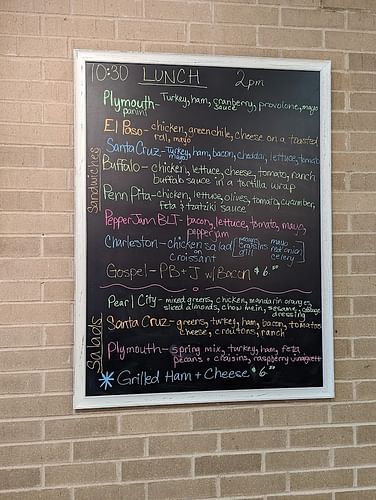 10:30 LUNCH 2pm
Sandwiches
Plymouth - Turkey, ham, cranberry sauce, provolone, mayo
panini
El Paso - chicken, green chile, cheese on a toasted
roll, mayo
Santa Cruz - Turkey, ham, bacon, cheddar, lettuce, tomato
mayo
Buffalo - chicken, lettuce, cheese, tomato, ranch
buffalo sauce in a tortilla wrap
Penn Pita - chicken, lettuce, olives, tomato, cucumber,
feta & tzatziki sauce
PepperJam BLT - bacon, lettuce, tomato, mayo,
pepperjam
Charleston - chicken salad [pecans craisins dill mayo red onion celery]
on croissant
Gospel - PB + J w/ Bacon $6.00
Salads
Pearl City - mixed greens, chicken, mandarin oranges,
sliced almonds, chow mein, sesame dressing
cabbage
Santa Cruz - greens, turkey, ham, bacon, tomatoes
cheese, croutons, ranch
Plymouth - spring mix, turkey, ham, feta
pecans + craisins, raspberry vinaigrette
* Grilled Ham + Cheese $6.00